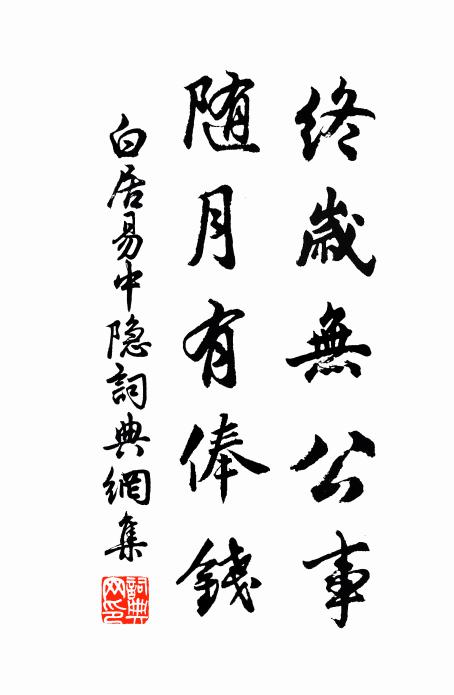 終歲無公事
随月有俸錢
白居易中隐詞典網集
詞典网印